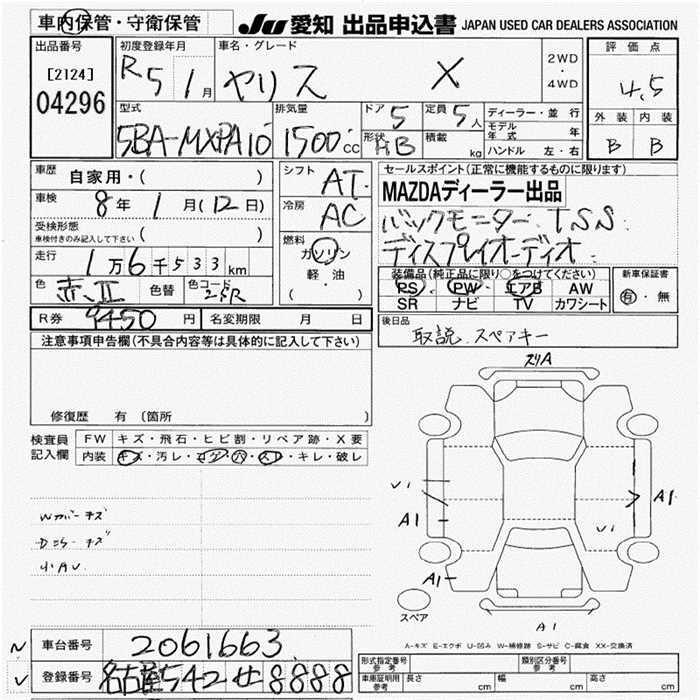 車内保管・守衛保管
JU 愛知 出品申込書 JAPAN USED CAR DEALERS ASSOCIATION
出品番号
[2124]
04296
初度登録年月
R5 1月
車名・グレード
ヤリス X
2WD
・
4WD
評価点
4.5
外装 内装
B B
型式
5BA-MXPA10
排気量
1500cc
ドア 5
形状 HB
定員 5人
積載 kg
ディーラー・並行
モデル年式 年
ハンドル 左・右
車歴 自家用・( )
車検 8年 1月(12日)
受検形態
車検付きのみ記入して下さい ( )
走行 1万6千533km
色 赤II 色替 色コード 2SR
シフト AT
冷房 AC
燃料
ガソリン
軽油
( )
セールスポイント(正常に機能するものに限ります)
MAZDAディーラー出品
バックモニター. TSS.
ディスプレイオーディオ.
装備品(純正品に限り○をつけてください)
PS PW エアB AW
SR ナビ TV カワシート
新車保証書
有・無
R券 9450円 名変期限 月 日
後日品
取説. スペアキー
注意事項申告欄(不具合内容等は具体的に記入して下さい)
修復歴 有 (箇所 )
検査員記入欄
FW キズ・飛石・ヒビ割・リペア跡・X要
内装 キズ・汚レ・コゲ・穴・スレ・キレ・破レ
Wカバーキズ
小AU.
スリA
A1
A1
A1
A1
スペア
A-キズ E-エクボ U-凹み W-補修跡 S-サビ C-腐食 XX-交換済
車台番号 2061663
登録番号 名古屋542せ8888
型式指定番号 参考
類別区分番号 参考
車庫証明用 参考 長さ cm 幅 cm 高さ cm